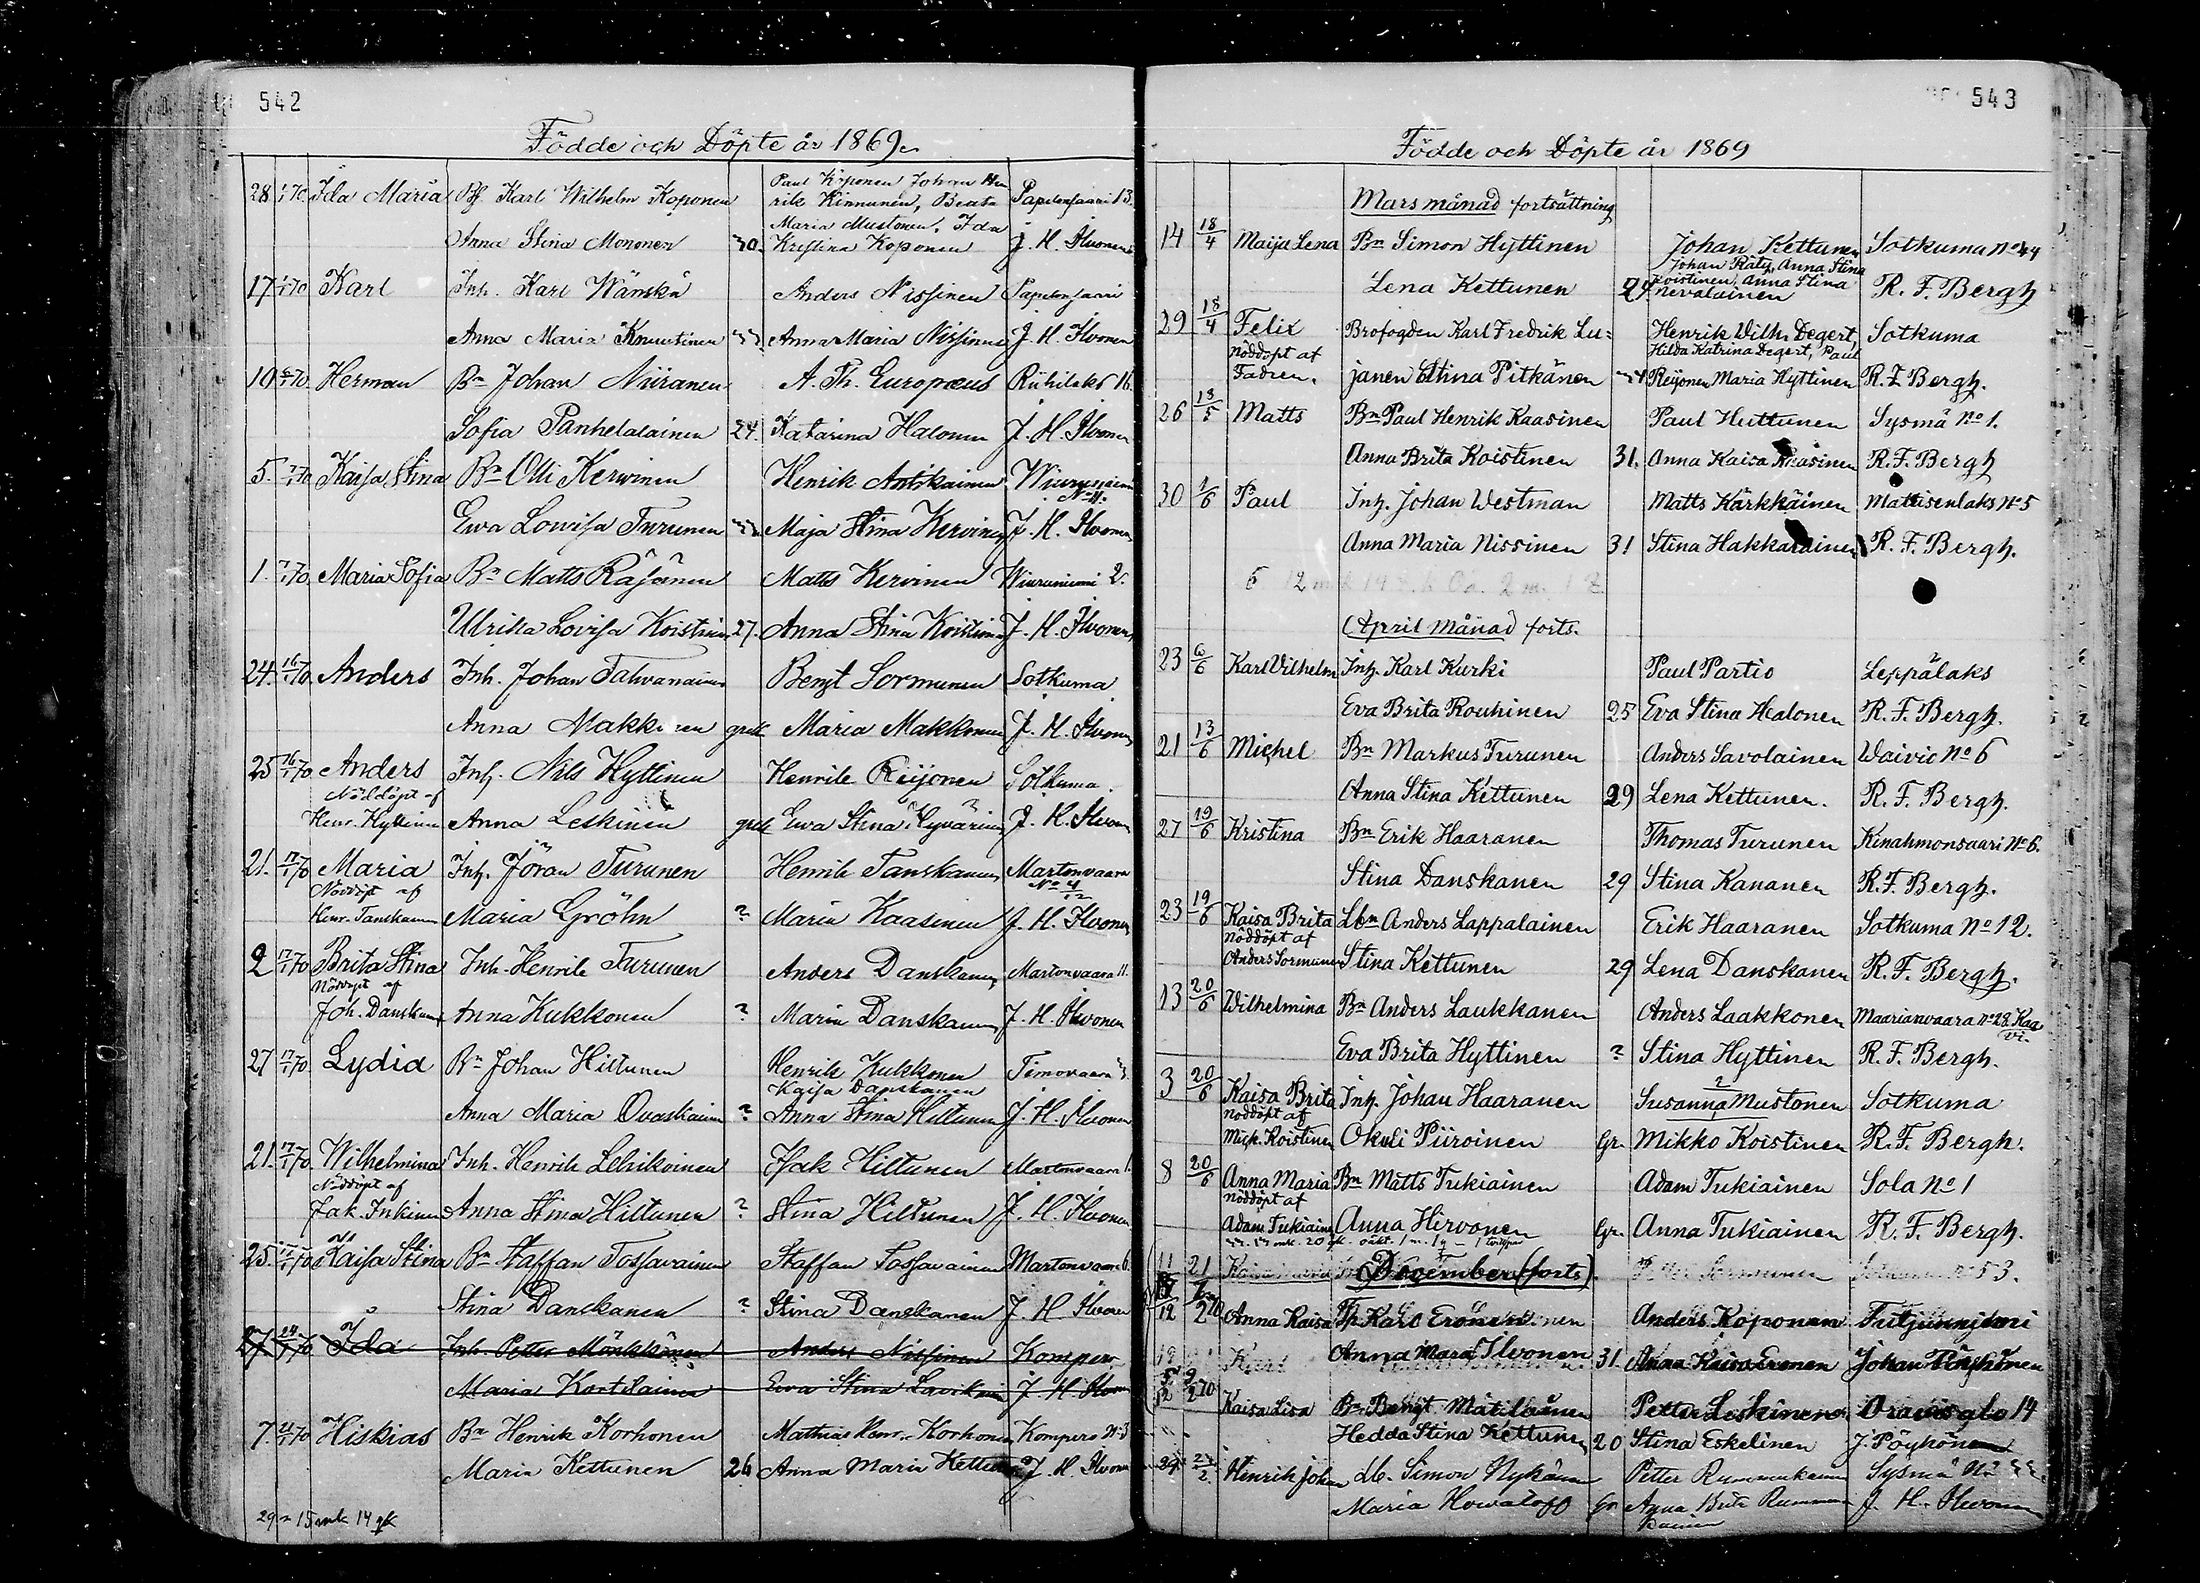 542
Födde och Döpte år 1869
28 1/1 70. Ida Maria Bf. Karl Wilhelm Koponen Paul Koponen Johan Hen
rik Kinnunen, Beata Papelonsaari 13.
Maria Mustonen, Ida
Anna Stina Mononen 30. Kristina Koponen J. H. Ilvonen
17 1/1 70 Karl Inh. Karl Wänskä Anders Nissinen Papelonsaari
Anna Maria Knuutinen Anna Maria Nissinen J. H. Ilvonen
10 6/1 70. Herman Bn Johan Niiranen A. Th. Europæus Riihilaks 16.
Sofia Panhelalainen 24. Katarina Halonen J. H. Ilvonen
5. 7/1 70 Kaisa Stina Bn Olli Kervinen Henrik Antikainen Wiuruniemi
No 11.
Ewa Lovisa Turunen Maja Stina Kervinen J. H. Ilvonen
1. 7/1 70. Maria Sofia Bn Matts Räsänen Matts Kervinen Wiuruniemi 2.
Ulrika Lovisa Koistinen 27. Anna Stina Koistinen J. H. Ilvonen
24. 16/1 70 Anders Inh. Johan Tahvanainen Bengt Sormunen Sotkuma
Anna Makkonen grek Maria Makkonen J. H. Ilvonen
25 16/1 70 Anders Inh. Nils Hyttinen Henrik Reijonen Sotkuma.
Nöddöpt af
Henr. Hyttinen Anna Leskinen grek Ewa Stina Hyvärinen J. H. Ilvonen
21. 17/1 70 Maria Inh. Jöran Turunen Henrik Tanskanen Martonvaara
Nöddöpt af No 4
Henr. Tanskanen Maria Gröhn ? Maria Kaasinen J. H. Ilvonen
2 17/1 70 Brita Stina Inh. Henrik Turunen Anders Danskanen Martonvaara 11.
Nöddöpt af
Joh. Danskanen Anna Kukkonen ? Maria Danskanen J. H. Ilvonen
27 17/1 70. Lydia Bn Johan Hiltunen Henrik Kukkonen Timovaara 3
Kaisa Danskanen
Anna Maria Ovaskainen ? Anna Stina Hiltunen J. H. Ilvonen
21. 17/1 70. Wilhelmina Inh. Henrik Lehikoinen Isak Hiltunen Martonvaara 1.
Nöddöpt af
Jak. Inkinen Anna Stina Hiltunen ? Stina Hiltunen J. H. Ilvonen
25. 17/1 70 Kaisa Stina Bn Staffan Tossavainen Staffan Tossavainen Martonvaara 6.
Stina Danskanen ? Stina Danskanen J. H. Ilvonen
27 24/1 70 Ida Inh. Petter Mönkkönen Anders Nissinen Kompero
Maria Kortelainen Ewa Stina J. H. Ilvonen
7. 21/1 70 Hiskias Bn Henrik Korhonen Mathias Henr. Korhonen Kompero No 3
Maria Kettunen 26 Anna Maria Kettunen J. H. Ilvonen
29 n 15 mk 14 qk
543
Födde och Döpte år 1869
Mars månad fortsättning
14 18/4 Maija Lena Bn Simon Hyttinen Johan Kettunen Sotkuma No 44
Johan Räty, Anna Stina
Koistinen, Anna Stina
Lena Kettunen 24 nevalainen R. F. Bergh
29 18/4 Felix Brofogden Karl Fredrik Lu= Henrik Wilh. Degert, Sotkuma
nöddöpt af Hilda Katrina Degert, Paul
Fadren. janen Stina Pitkänen Reijonen Maria Hyttinen R. F. Bergh.
26 13/5 Matts Bn Paul Henrik Kaasinen Paul Huttunen Sysmä No 1.
Anna Brita Koistinen 31. Anna Kaisa Kaasinen R. F. Bergh
30 1/6 Paul Inh. Johan Westman Matts Kärkkäinen Mattisenlaks No 5
Anna Maria Nissinen 31 Stina Hakkarainen R. F. Bergh.
April månad forts.
23 6/6 Karl Vilhelm Inh. Karl Kurki Paul Partio Leppälaks
Eva Brita Rouhinen 25 Eva Stina Halonen R. F. Bergh.
21 13/6 Michel Bn Markus Turunen Anders Savolainen Waivio No 6
Anna Stina Kettunen 29 Lena Kettunen. R. F. Bergh.
27 19/6 Kristina Bn Erik Haaranen Thomas Turunen Kinahmonsaari No 6.
Stina Danskanen 29 Stina Kananen R. F. Bergh.
23 19/6 Kaisa Brita Lbn Anders Lappalainen Erik Haaranen Sotkuma No 12.
nöddöpt af
Anders Sormunen Stina Kettunen 29 Lena Danskanen R. F. Bergh.
13 20/6 Wilhelmina Bn Anders Laukkanen Anders Laakkonen Maarianvaara No 28 Kaa
vi.
Eva Brita Hyttinen ? Stina Hyttinen R. F. Bergh.
3 20/6 Kaisa Brita Inh. Johan Haaranen Susanna Mustonen Sotkuma
nöddöpt af
Mick. Koistinen Okuli Piiroinen Gr. Mikko Koistinen R. F. Bergh.
8 20/6 Anna Maria Bn Matts Tukiainen Adam Tukiainen Sola No 1
nöddöpt af
Adam Tukiainen Anna Hirvonen Gr. Anna Tukiainen R. F. Bergh.
11 21 December (forts)
12 2 70 Anna Kaisa Karl Eronen Anders Koponen
Anna Maria Ilvonen 31 Anna Kaisa Eronen Johan Pöyhönen
12 2 70 Kaisa Lisa Bn Bengt Matilainen Petter Leskinen 14
Hedda Stina Kettunen 20 Stina Eskelinen J. Pöyhönen
29 27/2 Henrik Johan Lb. Simon Nykänen Petter Rummukainen Sysmä No
Maria Howatoff Gr Anna Brita Rummu J. H. Ilvonen
kainen